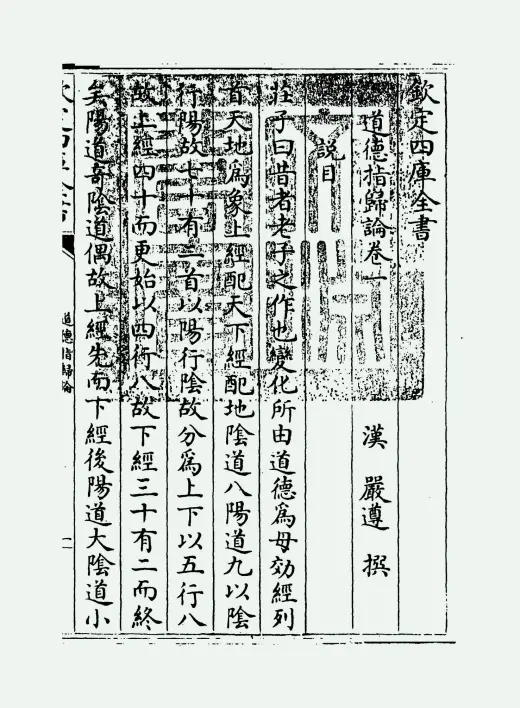 欽定四庫全書
道德指歸論卷一
漢 嚴遵 撰
說目
莊子曰昔者老子之作也變化所由道德為母効經列
首天地為象上經配天下經配地陰道八陽道九以陰
行陽故七十有二首以陽行陰故分為上下以五行八
故上經四十而更始以四行八故下經三十有二而終
矣陽道奇陰道偶故上經先而下經後陽道大陰道小
道德指歸論